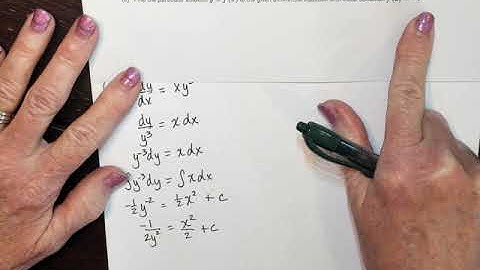 the particular solution y = f(x) to the given differential equation with initial condition
dy/dx = xy
dy/y³ = x dx
y⁻³dy = x dx
∫y⁻³dy = ∫x dx
-½y⁻² = ½x² + c
-1/2y² = x²/2 + c